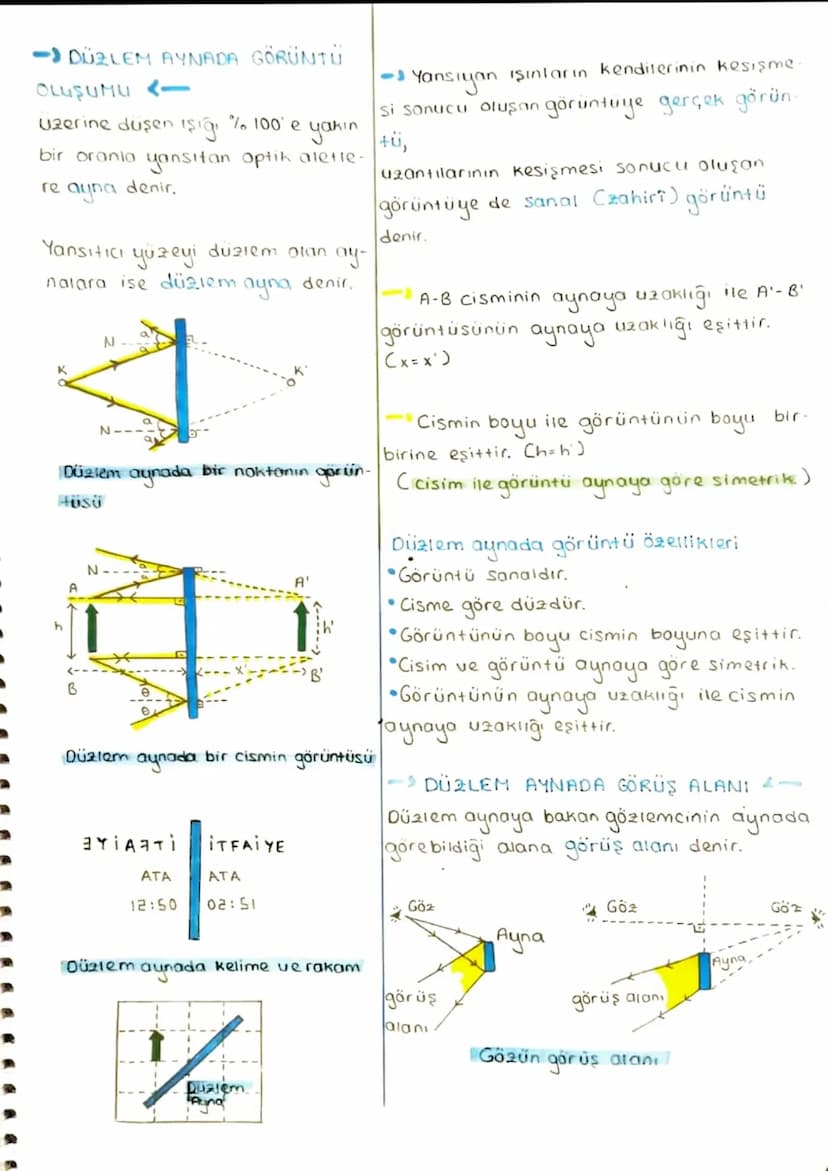 → DÜZLEM AYNADA GÖRÜNTÜ
OLUŞUMU ←
üzerine düşen ışığı % 100'e yakın
bir oranla yansıtan optik aletle-
re ayna denir.
Yansıtıcı yüzeyi düzlem olan ay-
nalara ise düzlem ayna denir.
N a
a
K K'
N a
a
Düzlem aynada bir noktanın görün-
tüsü
N a
a
A A'
h h'
x x'
B B'
θ
θ
Düzlem aynada bir cismin görüntüsü
ƎYİAꟻTİ İTFAİYE
ATA ATA
12:50 02:51
Düzlem aynada kelime ve rakam
Düzlem
Ayna
→ Yansıyan ışınların kendilerinin kesişme-
si sonucu oluşan görüntüye gerçek görün-
tü,
uzantılarının kesişmesi sonucu oluşan
görüntüye de sanal (zahirî) görüntü
denir.
→ A-B cisminin aynaya uzaklığı ile A'-B'
görüntüsünün aynaya uzaklığı eşittir.
(x=x')
→ Cismin boyu ile görüntünün boyu bir-
birine eşittir. (h=h')
(cisim ile görüntü aynaya göre simetrik)
Düzlem aynada görüntü özellikleri
• Görüntü sanaldır.
• Cisme göre düzdür.
• Görüntünün boyu cismin boyuna eşittir.
• Cisim ve görüntü aynaya göre simetrik.
• Görüntünün aynaya uzaklığı ile cismin
aynaya uzaklığı eşittir.
→ DÜZLEM AYNADA GÖRÜŞ ALANI ←
Düzlem aynaya bakan gözlemcinin aynada
görebildiği alana görüş alanı denir.
Göz
Ayna
görüş
alanı
Göz Göz
Ayna
görüş alanı
Gözün görüş alanı